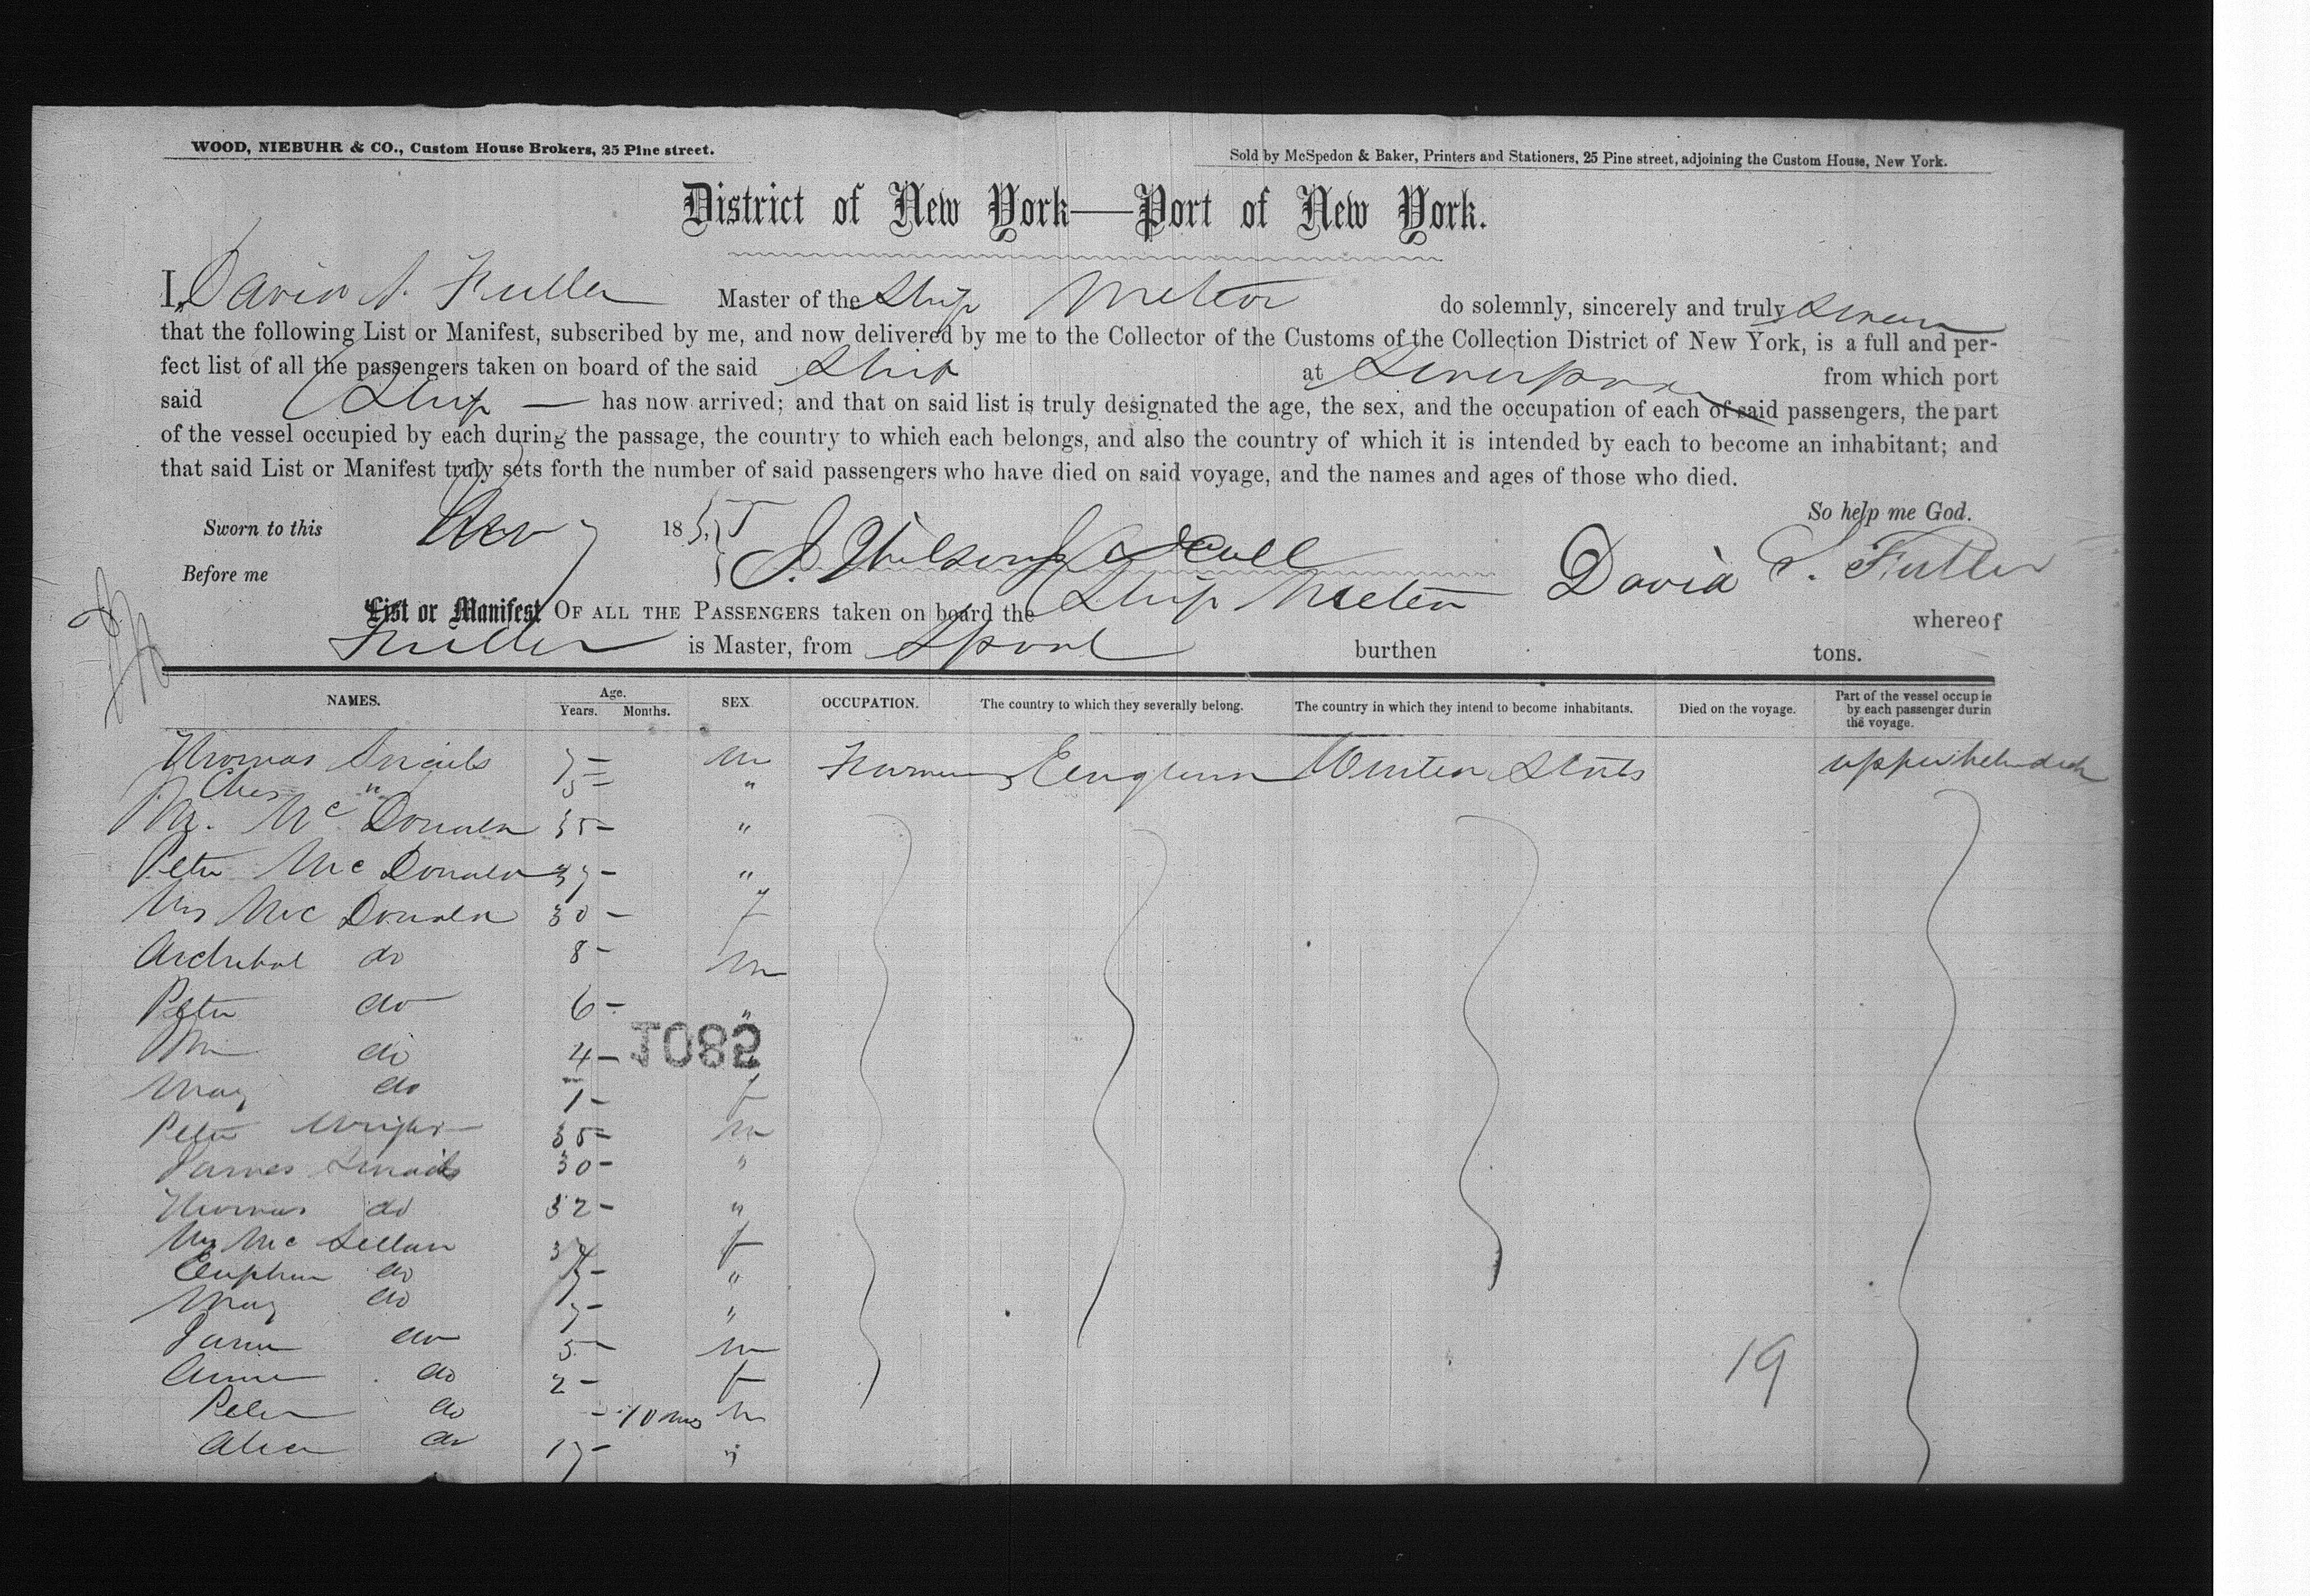 WOOD, NIEBUHR & CO., Custom House Brokers, 25 Pine street.
Sold by McSpedon & Baker, Printers and Stationers, 25 Pine street, adjoining the Custom House, New York.
District of New York—Port of New York.
I, David S. Fuller Master of the Ship Meteor do solemnly, sincerely and truly swear
that the following List or Manifest, subscribed by me, and now delivered by me to the Collector of the Customs of the Collection District of New York, is a full and per-
fect list of all the passengers taken on board of the said Ship at Liverpool from which port
said Ship — has now arrived; and that on said list is truly designated the age, the sex, and the occupation of each of said passengers, the part
of the vessel occupied by each during the passage, the country to which each belongs, and also the country of which it is intended by each to become an inhabitant; and
that said List or Manifest truly sets forth the number of said passengers who have died on said voyage, and the names and ages of those who died.
So help me God.
Sworn to this 7 185
Before me J. Wilson David S. Fuller
List or Manifest OF ALL THE PASSENGERS taken on board the Ship Meteor whereof
Fuller is Master, from Lpool burthen tons.
NAMES. Age. Years. Months. SEX. OCCUPATION. The country to which they severally belong. The country in which they intend to become inhabitants. Died on the voyage. Part of the vessel occupie by each passenger durin the voyage.
Thomas Smails 7 – m Farmer England United States upper
Ches " 5 – "
Mc Donald 35 – "
Peter Mc Donald 37 – "
Mrs Mc Donald 30 – f
Archibal do 8 – m
Peter do 6 – "
do 4 –
T082
May do 1 – f
Peter Wright 35 – m
James Smails 30 – "
Thomas do 32 – "
Mrs Mc Lellan 34 f
Euphem do "
May do 7 – "
James do 5 – m
Anne do 2 – f
19
Peter do – 10 mos m
Alex do 17 – "